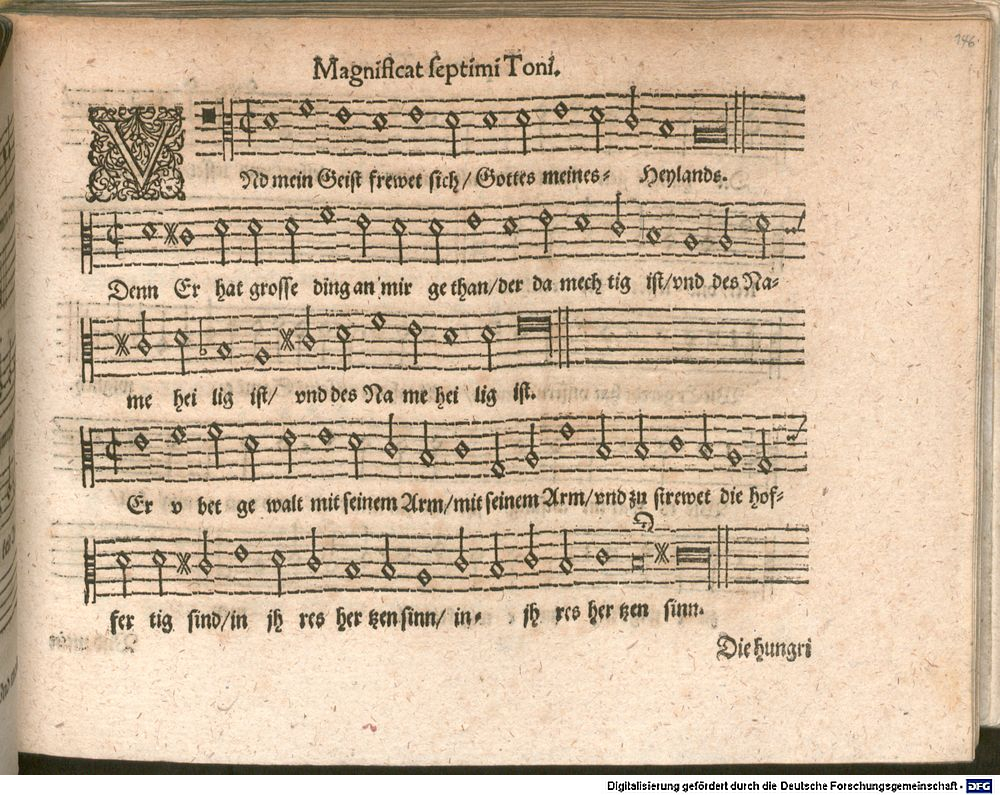 146
Magnificat septimi Toni.
VNd mein Geist frewet sich/ Gottes meines- Heylands.
Denn Er hat grosse ding an mir ge than/der da mech tig ist/vnd des Na-
me hei lig ist/ vnd des Na me hei lig ist.
Er v bet ge walt mit seinem Arm/mit seinem Arm/vnd zu strewet die hof-
fer tig sind/in jh res her tzen sinn/ in- jh res her tzen sinn.
Die hungri
Digitalisierung gefördert durch die Deutsche Forschungsgemeinschaft - DFG